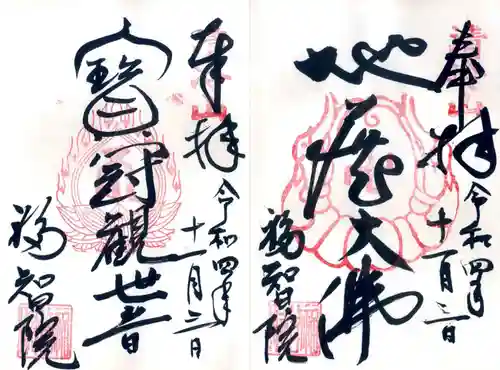 奉拝
令和四年
十一月三日
地蔵大佛
福智院
奉拝
令和四年
十一月三日
寶冠観世音
福智院